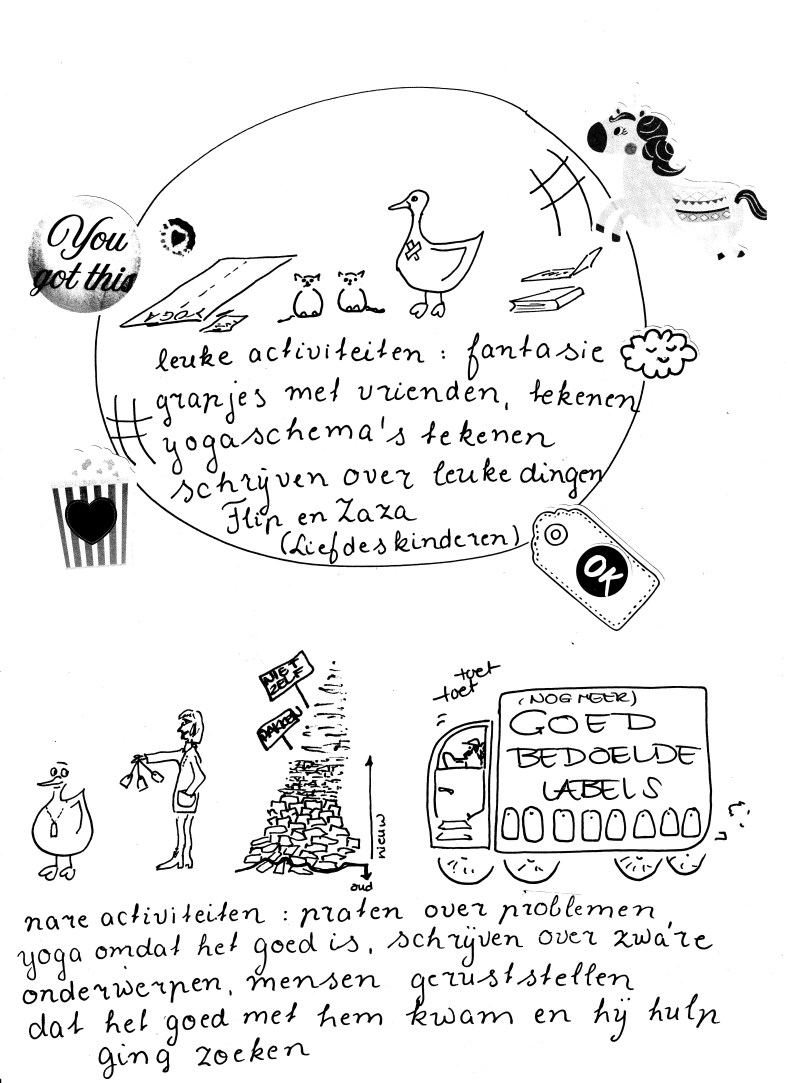 You
got this
YOGA
leuke activiteiten : fantasie
grapjes met vrienden, tekenen
yogaschema's tekenen
schrijven over leuke dingen
Flip en Zaza
(Liefdeskinderen)
OK
NIET
ZELF
PAKKEN
nieuw
oud
toet
toet
(NOG MEER)
GOED
BEDOELDE
LABELS
nare activiteiten : praten over problemen,
yoga omdat het goed is, schrijven over zware
onderwerpen, mensen geruststellen
dat het goed met hem kwam en hij hulp
ging zoeken